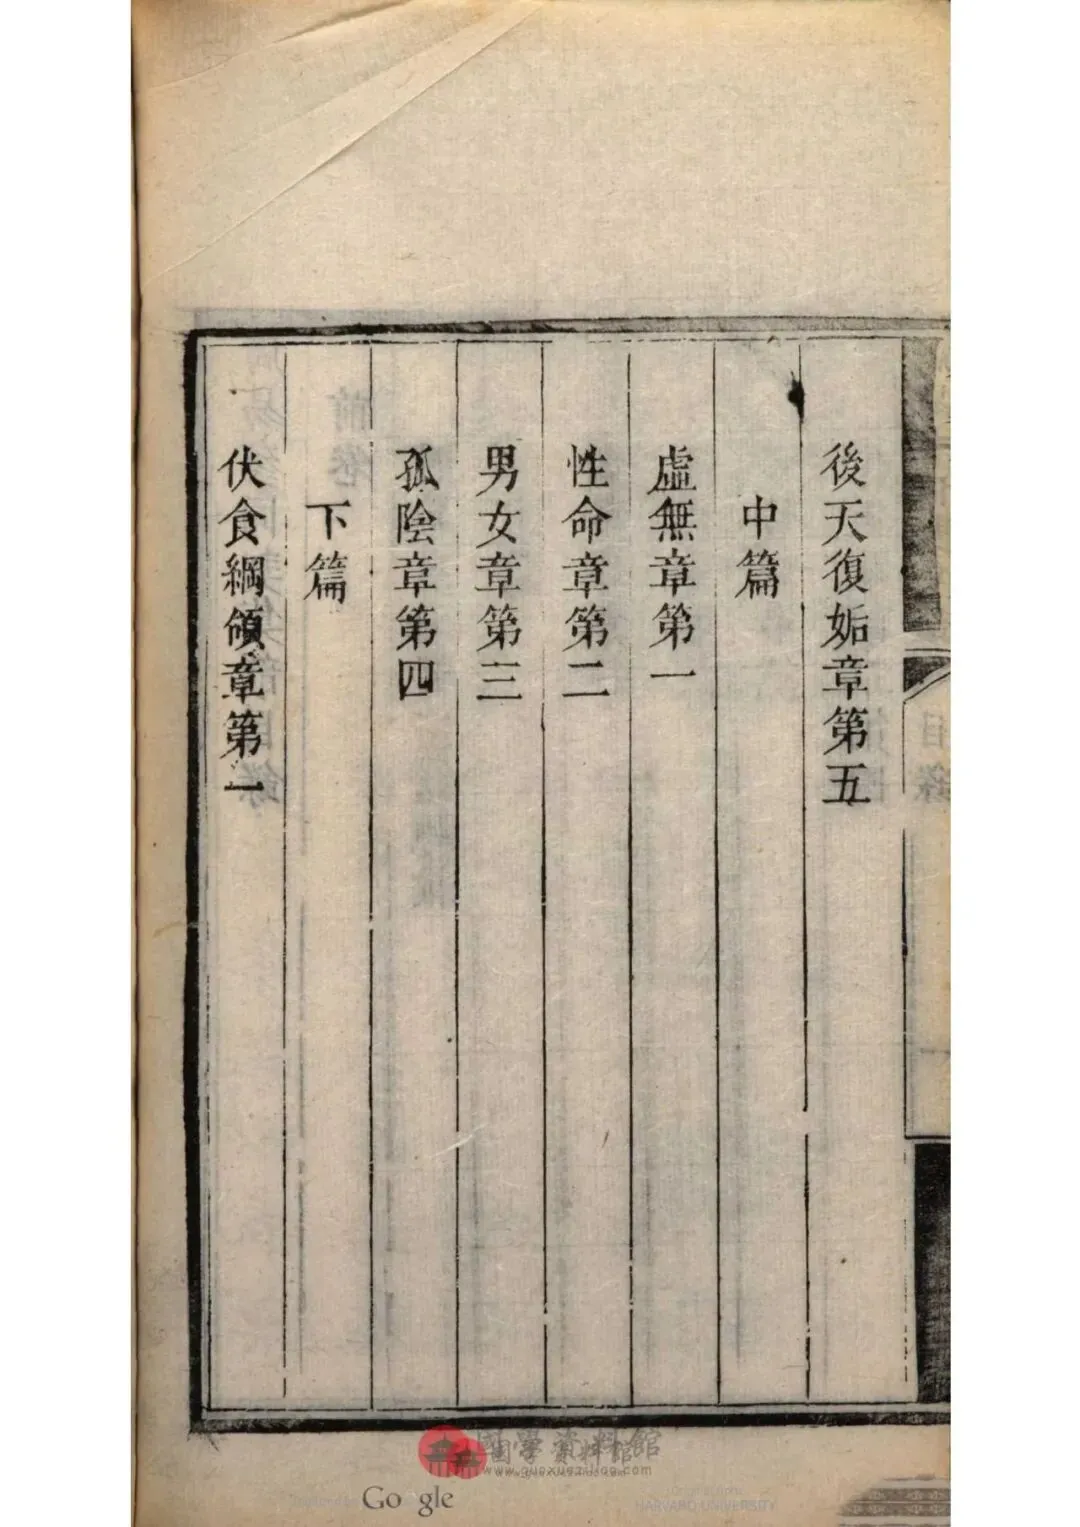 後天復姤章第五
中篇
虛無章第一
性命章第二
男女章第三
孤陰章第四
下篇
伏食綱領章第一
目錄
國學資料館
www.guoxueziliao.com
Google
HARVARD UNIVERSITY